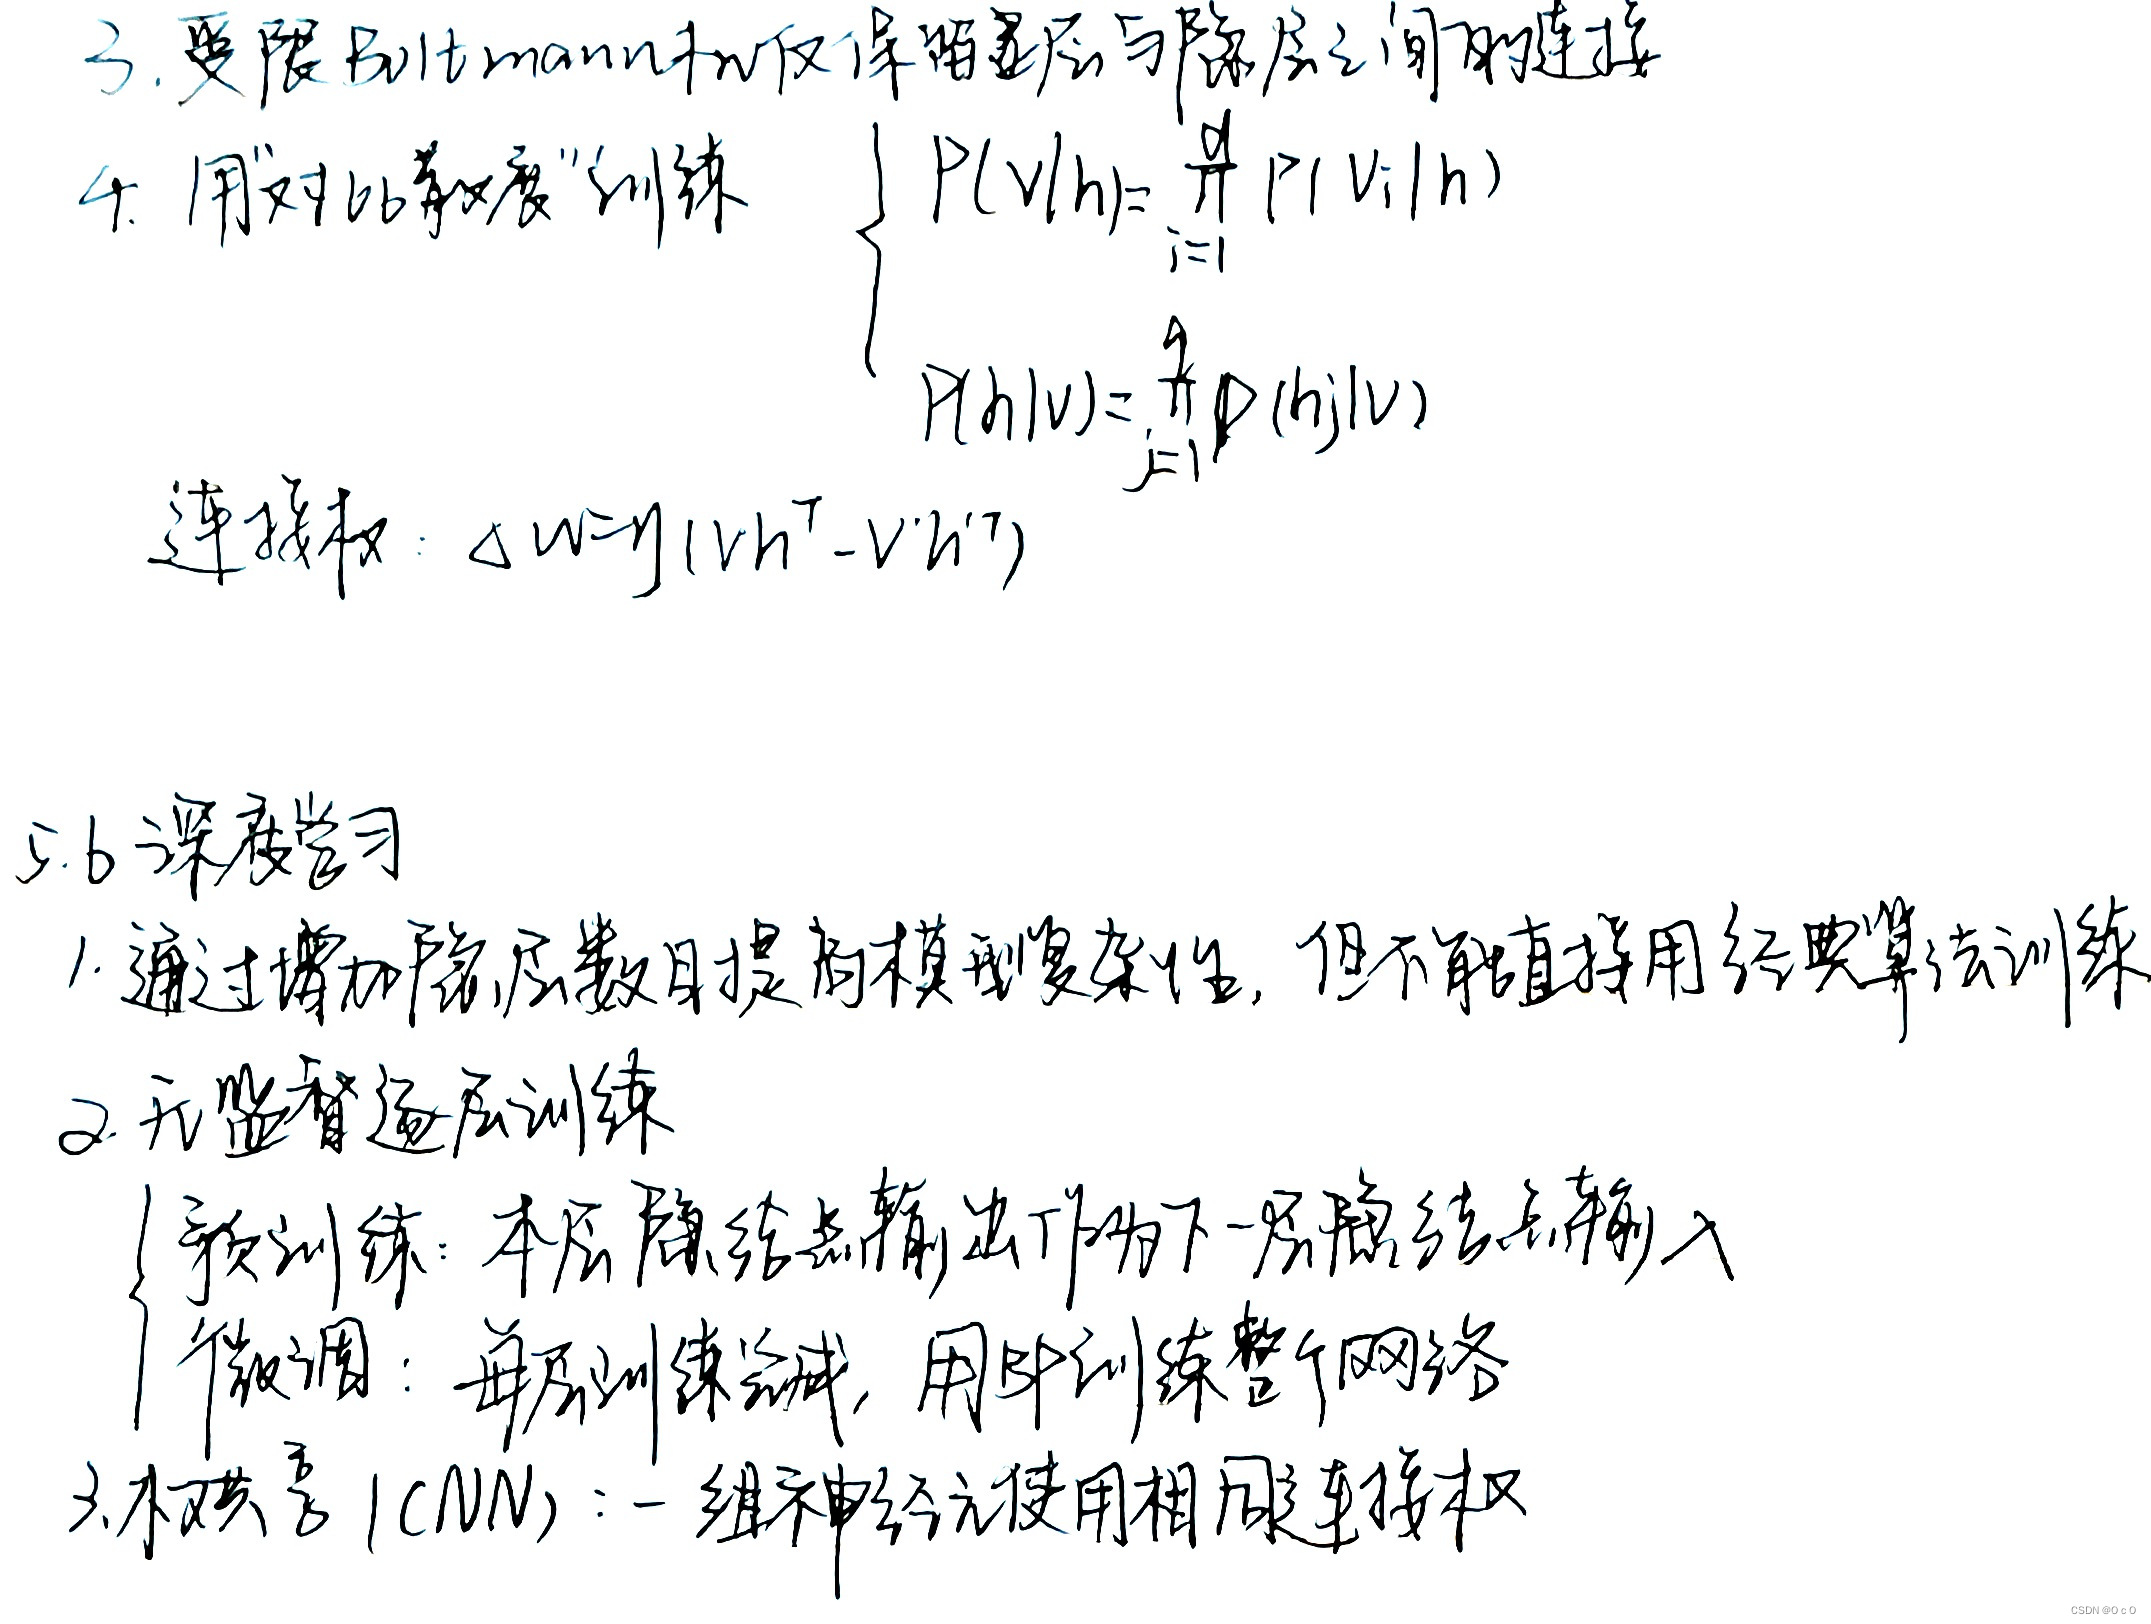 3.受限Boltmann机仅保留显层与隐层之间的连接
4. 用"对比散度"训练
P(V|h)=∏_{i=1}^{d} P(Vi|h)
P(h|V)=∏_{j=1}^{q} P(hj|V)
连接权：ΔW=η(Vh^T-V'h'^T)
5.6 深度学习
1.通过增加隐层数目提高模型复杂性,但不能直接用经典算法训练
2.无监督逐层训练
预训练：本层隐结点输出作为下一层隐结点输入
微调：每层训练完成,用BP训练整个网络
3.权共享(CNN)：一组神经元使用相同连接权
CSDN @O c O